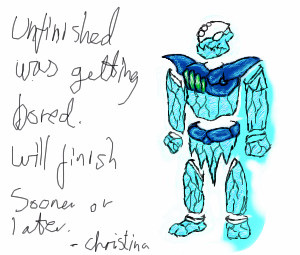 Unfinished
was getting
bored.
Will finish
Sooner or
later.
- Christina